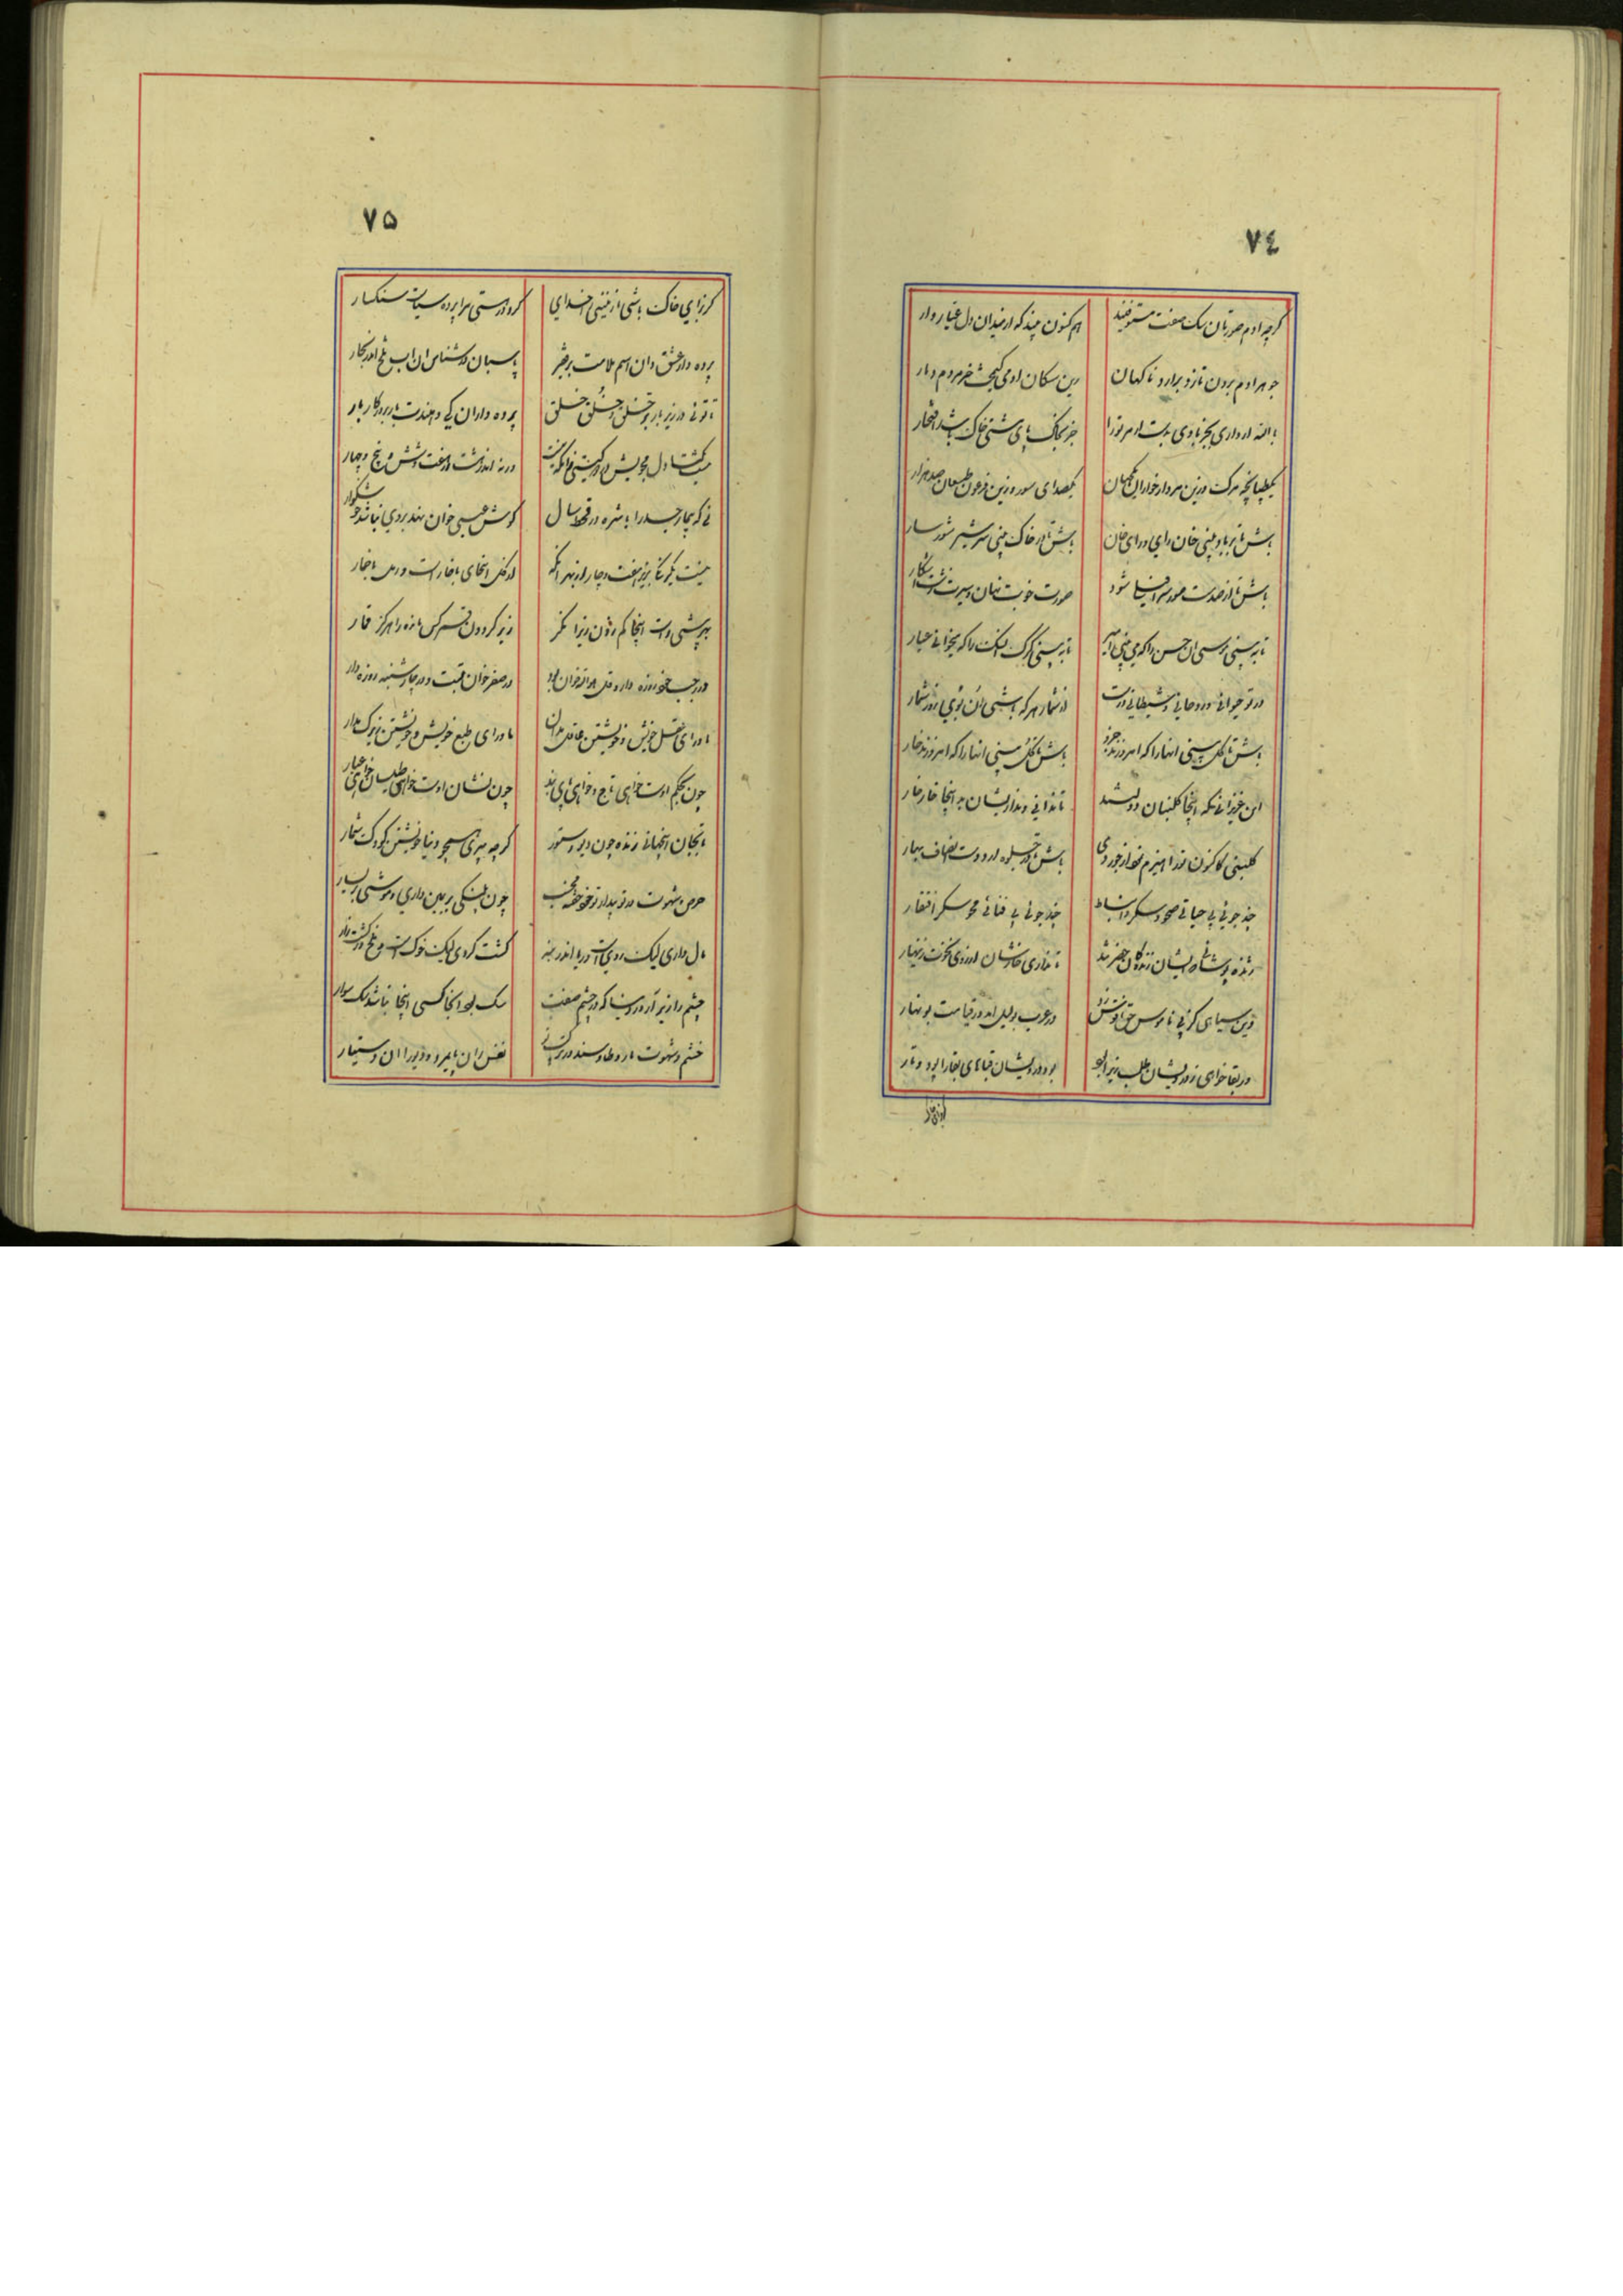 ۷۴
گرچه ادم صورتان سک صفت مستوفیند هم کنون بیند که از میدان دل عیار وار
جوهر ادم برون تازد برارد ناکهان زین سکان ادمی کیمخت خر مردم دمار
جز بخاک پای مشتی خاک باشد افتخار
یکطپانچه مرک وزین مردار خواران یکجهان یکصدای صور وزین فرعون طبعان صد هزار
باش تا بر باد بینی خان رای و رای خان باش تا در خاک بینی شر شیر شور سار
باش تا از صدمت صور سرافیلی شود صورت خوبت نهان و سیرت زشت اشکار
تا به بینی موسی ان خس را که می بینی امیر تا به بینی کرک ان سک را که میخوانی عیار
در تو حیوانی و روحانی و شیطانی درست از شمار هر که باشی ان توئی روز شمار
باش تا کل بینی انها را که امروزند جزو باش تا کل بینی انها را که امروزند خار
این عزیزانی که اینجا کلبنان دولتند تا ندانی و نداریشان به اینجا خار خار
کلبنی کاکنون ترا هیزم نمود از جور دی باش تا در جلوه ارد دست انصاف بهار
چند جوئی بی حیاتی صحو و سکر و انبساط چند جوئی بی فنائی محو و سکر و افتقار
ژنده پوشانی که ایشان زندکان حضرتند تا نداری خوارشان از روی نخوت زینهار
وین سیاهی کز پی ناموس حق ناقوس زد در عرب بولیل اندر قیامت بو نهار
در بقا خواهی ز درویشان طلب زیرا بود بود درویشان قباهای بقا را پود و تار
۷۵
کر ز ای خاک باشی از فتنی خدای کرد در مستی سراپرده سیاست سنکسار
پرده دار عشق دان اسم ملامت بر فقیر پاسبان در شناس ان اب تلخ اندر بحار
تا توئی در زیر بار خلق و جلق و حلق پرده داران کی دهندت بار بر درکار بار
ورنه اندر دشت هفت و شش و پنج و چهار
نی که بیمار حسد را با شره در قحط سال کوش عیسی خوان نهد بر وی نباشد خوشکوار
نیست یکرنکی بزیر هفت و چار از بهر انکه ار کل است انجای با خار است ور مل با خمار
بهر بیشی راست اینجا کم زدن زیرا نکرد زیر کردون قمر کس مانده را هرکز قمار
در رجب خود روزه دار و قل هو الله خوان بود در صفر خوان تبت و در چارشنبه روزه دار
ماورای عقل خویش و خویشتن عاقل مدان ماورای طبع خویش و خویشتن بزرک مدار
چون بحکم اوست خواهی تاج و خواهی پای بند چون نشان اوست خواهی طیلسان خواهی غیار
تا بجان اینجهانی زنده چون دیو و ستور کرچه پیری همچو دنیا خویشتن کودک شمار
حرص و شهوت در تو بیدارند خوش خوش تو مخسب چون پلنکی بر یمین داری و موشی بر یسار
مال داری لیک روی است و ریا اندر بنه کشت کردی لیک خوک است و ملخ در کشت زار
چشم را زیر ار در دنیا که در چشم صفت سک بود انجا کسی اینجا نباشد سک سوار
خشم و شهوت مار و طاوسند در ترکیب نفس را ان پایمرد و دیو را ان دستیار